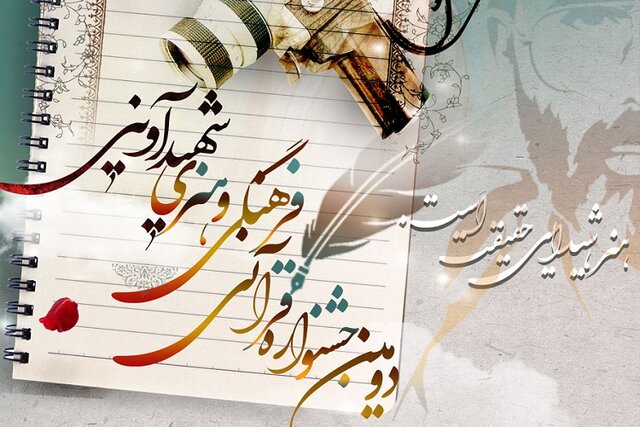 دومین جشنواره قرآنی
فرهنگی و هنری
شهید آوینی
هنر شیدای حقیقت است